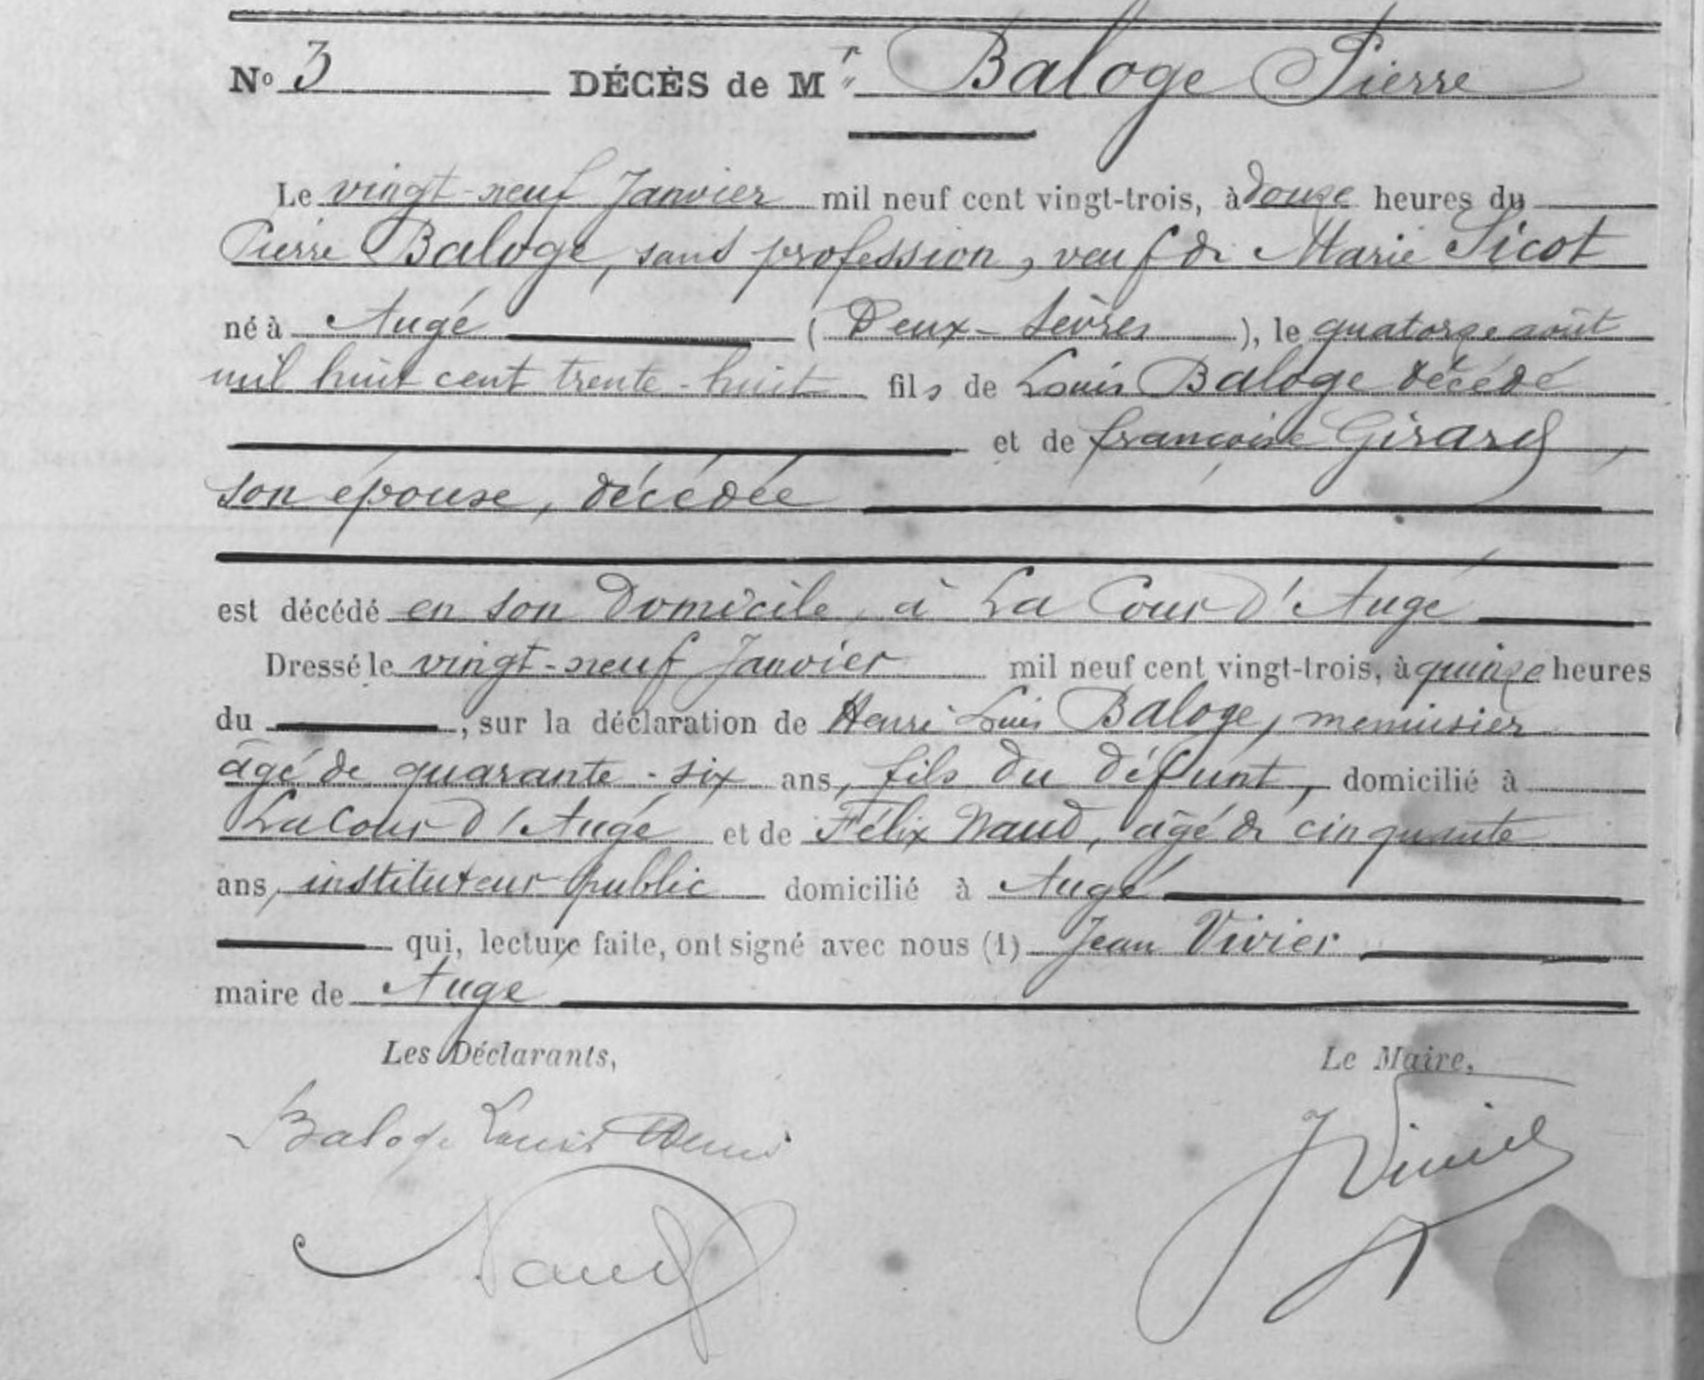 No 3 DÉCÈS de Mr Baloge Pierre
Le vingt-neuf Janvier mil neuf cent vingt-trois, à douze heures du
Pierre Baloge, sans profession, veuf de Marie Sicot
né à Augé (Deux-Sèvres), le quatorze août
mil huit cent trente-huit fils de Louis Baloge décédé
et de françoise Girard,
son épouse, décédée
est décédé en son domicile, à La Cour d'Augé
Dressé le vingt-neuf Janvier mil neuf cent vingt-trois, à quinze heures
du , sur la déclaration de Henri Louis Baloge, menuisier
âgé de quarante-six ans, fils du défunt, domicilié à
La Cour d'Augé et de Félix Naud, âgé de cinquante
ans, instituteur public domicilié à Augé
qui, lecture faite, ont signé avec nous (1) Jean Vivier
maire de Augé
Les Déclarants, Le Maire,
Baloge Louis
JVivier
Naud